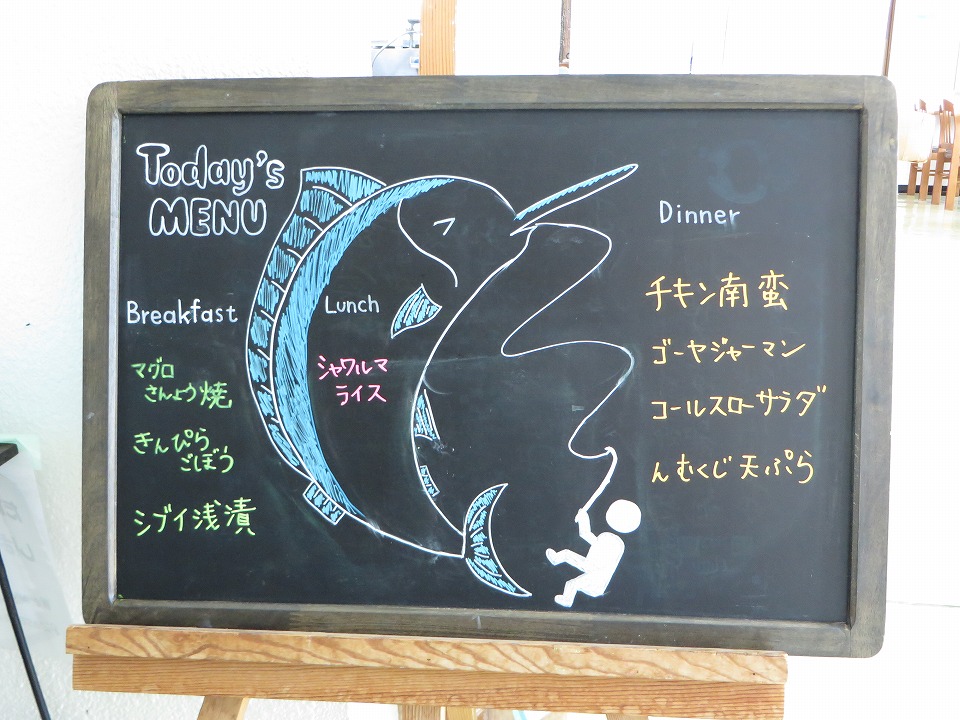 Today's
MENU
Breakfast
マグロ
さんしょう焼
きんぴら
ごぼう
シブイ浅漬
Lunch
シャワルマ
ライス
Dinner
チキン南蛮
ゴーヤジャーマン
コールスローサラダ
んむくじ天ぷら